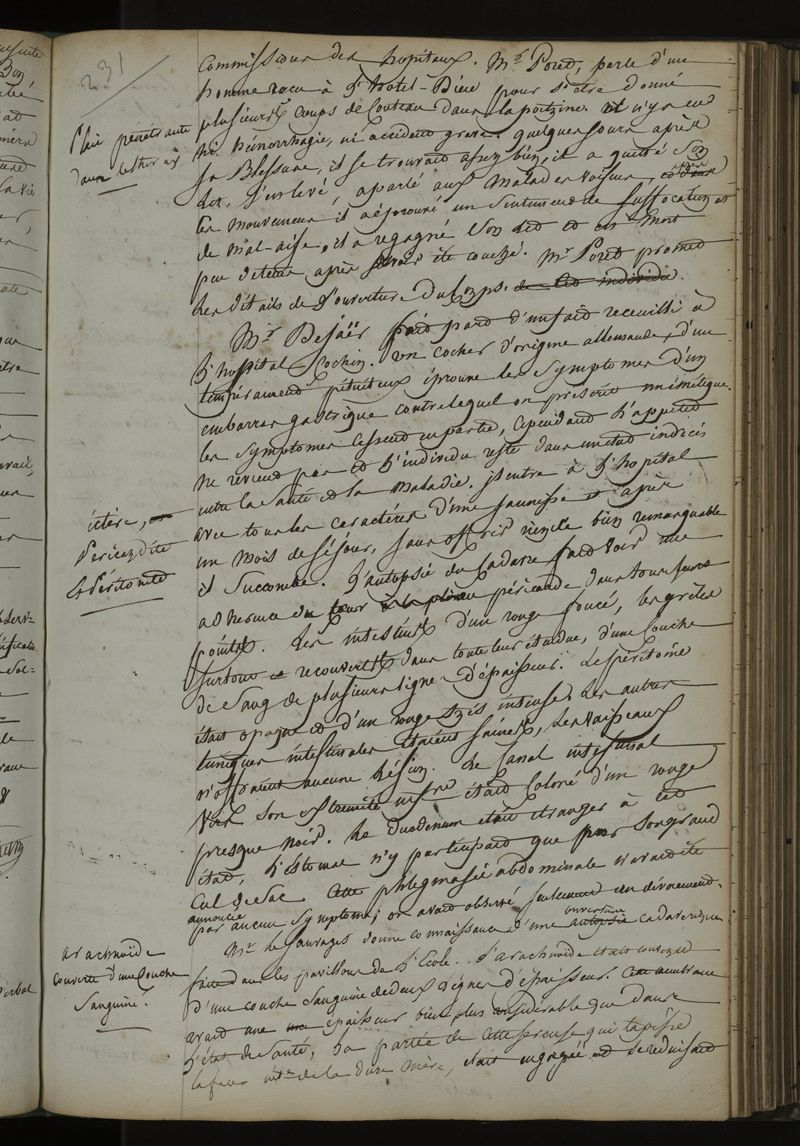 231
Commissions des hopitaux. Mr. Poret, parle d'un
homme reçu à l'hotel-Dieu pour s'etre donné
Plaie pénétrante
dans le thorax
plusieurs Coups de Couteau dans la poitrine. il n'y a eu
ni hémorrhagie, ni accidents graves quelques jours après
sa Blessure, il se trouvait assez bien, il a quitté son
lit, s'est levé, a parlé aux Malades voisins, après
les mouvemens il a éprouvé un sentiment de suffocation et
de mal-aise, il a regagné son lit et est mort
peu de tems après s'être couché. Mr. Poret promet
les détails de l'ouverture Du Corps. de cet individu.
Mr. fait part d'un fait recueilli à
l'hospital Cochin. Un cocher d'origine allemande, d'un
tempérament pituiteux éprouve les symptomes d'un
embarras gastrique contre lequel on prescrit un émétique.
les symptomes cessent en partie, cependant l'appetit
ne revient pas et l'individu reste dans un état indécis
entre la Santé et la Maladie. il entre à l'hopital
ictère,
Péricardite
Et Péritonite
avec tous les caractères d'une jaunisse et après
un Mois de séjour, sans offrir rien de bien remarquable
il succombe. L'autopsie du Cadavre fait voir une
adherence du péricarde dans tous ses
points. Les intestins d'un rouge foncé, les grêles
surtout recouverts dans toute leur étendue, d'une Couche
de Sang de plusieurs lignes d'épaisseur. Le péritoine
était opaque et d'un rouge très intense, les autres
tuniques intestinales étaient saines, les Vaisseaux
n'offraient aucune Lésion. Le Canal intestinal
vers son extremité était Coloré d'un rouge
presque noir. Le duodenum était étranger à cet
état, L'estomac n'y participait que par son grand
Cul de Sac. Cette phlegmasie abdominale n'avait été
annoncée
par aucun symptome; on avait observé seulement un dévoiement.
Mr. de Sauvages donne connaissance d'une ouverture cadaverique
arachnoïde
Couverte d'une Couche
Sanguine.
faite dans les pavillons de l'Ecole. L'arachnoïde était couverte
D'une couche Sanguine de deux lignes d'épaisseur. Cette membrane
avait une épaisseur bien plus considérable que dans
l'état de Santé, la partie de cette sereuse qui tapisse
la face int.ne de la Dure Mère, était et se reduisait